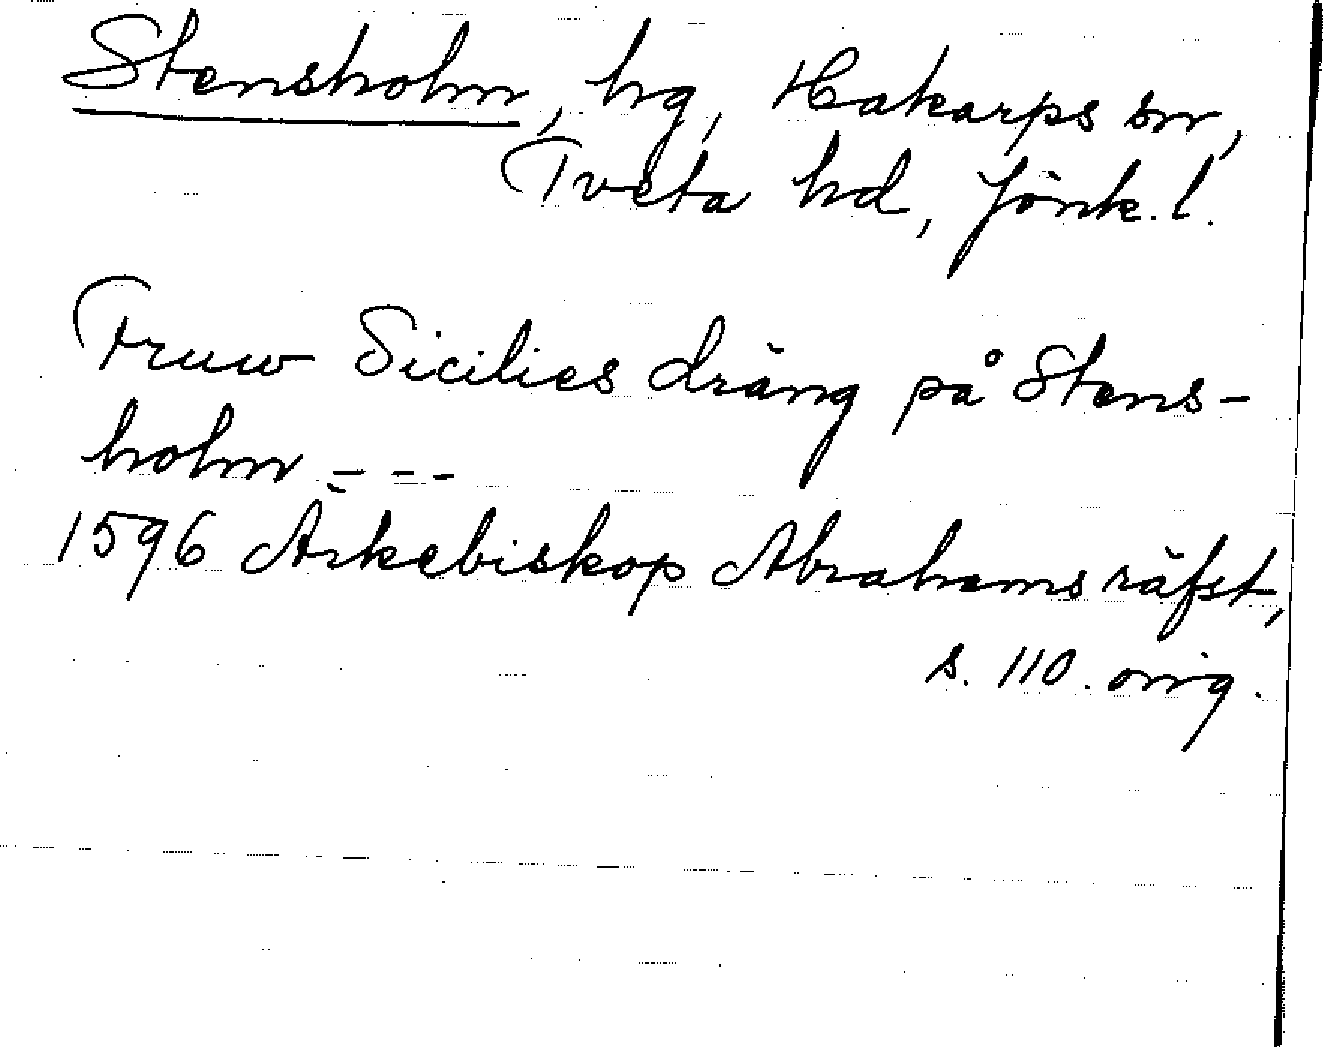 Stensholm, hg, Hakarps sn,
Tveta hd, Jönk. l.
Fruw Sicilies dräng på Stens-
holm - - -
1596 Ärkebiskop Abrahams räfst,
s. 110. orig.